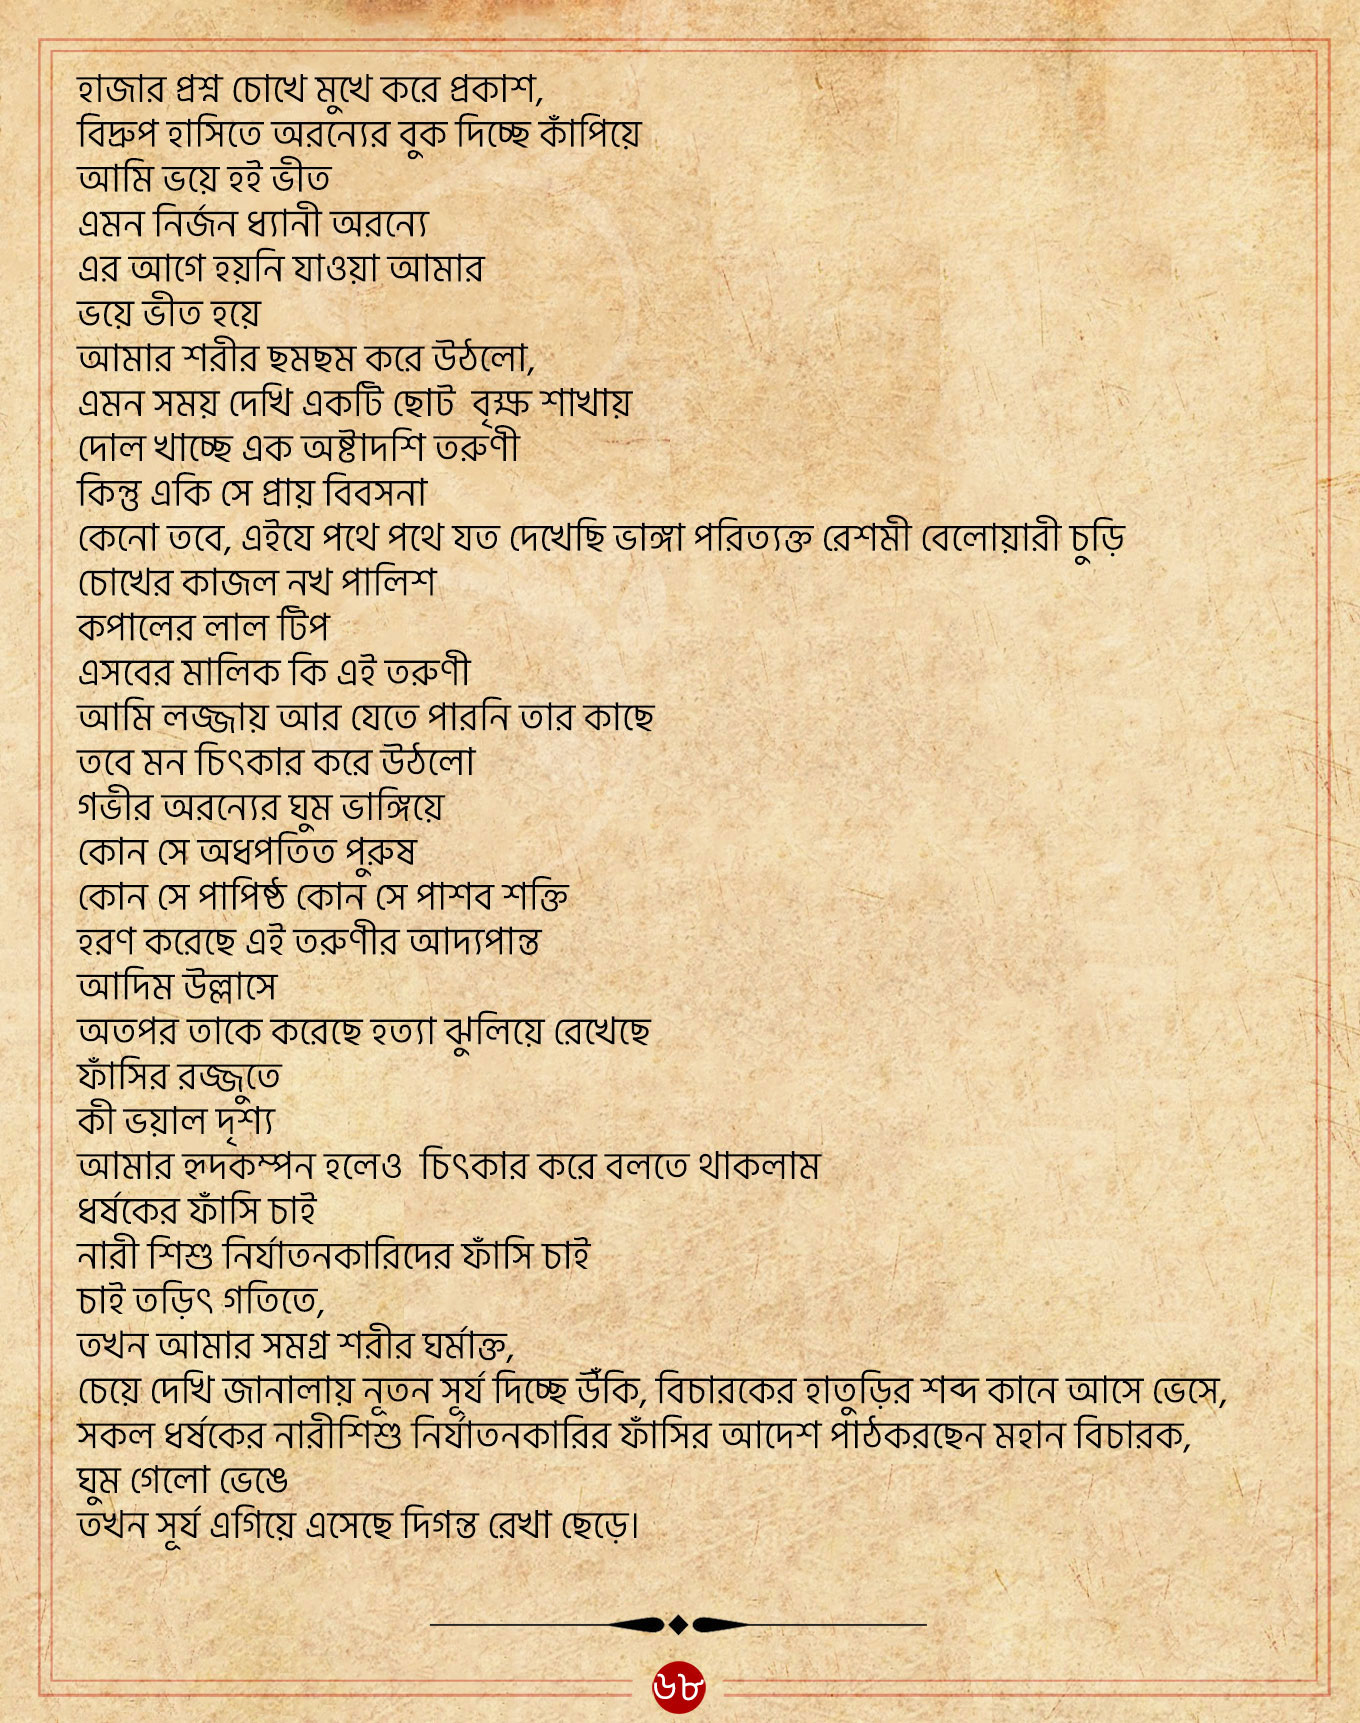 হাজার প্রশ্ন চোখে মুখে করে প্রকাশ,
বিদ্রুপ হাসিতে অরন্যের বুক দিচ্ছে কাঁপিয়ে
আমি ভয়ে হই ভীত
এমন নির্জন ধ্যানী অরন্যে
এর আগে হয়নি যাওয়া আমার
ভয়ে ভীত হয়ে
আমার শরীর ছমছম করে উঠলো,
এমন সময় দেখি একটি ছোট বৃক্ষ শাখায়
দোল খাচ্ছে এক অষ্টাদশি তরুণী
কিন্তু একি সে প্রায় বিবসনা
কেনো তবে, এইযে পথে পথে যত দেখেছি ভাঙ্গা পরিত্যক্ত রেশমী বেলোয়ারী চুড়ি
চোখের কাজল নখ পালিশ
কপালের লাল টিপ
এসবের মালিক কি এই তরুণী
আমি লজ্জায় আর যেতে পারনি তার কাছে
তবে মন চিৎকার করে উঠলো
গভীর অরন্যের ঘুম ভাঙ্গিয়ে
কোন সে অধপতিত পুরুষ
কোন সে পাপিষ্ঠ কোন সে পাশব শক্তি
হরণ করেছে এই তরুণীর আদ্যপান্ত
আদিম উল্লাসে
অতপর তাকে করেছে হত্যা ঝুলিয়ে রেখেছে
ফাঁসির রজ্জুতে
কী ভয়াল দৃশ্য
আমার হৃদকম্পন হলেও চিৎকার করে বলতে থাকলাম
ধর্ষকের ফাঁসি চাই
নারী শিশু নির্যাতনকারিদের ফাঁসি চাই
চাই তড়িৎ গতিতে,
তখন আমার সমগ্র শরীর ঘর্মাক্ত,
চেয়ে দেখি জানালায় নূতন সূর্য দিচ্ছে উঁকি, বিচারকের হাতুড়ির শব্দ কানে আসে ভেসে,
সকল ধর্ষকের নারীশিশু নির্যাতনকারির ফাঁসির আদেশ পাঠকরছেন মহান বিচারক,
ঘুম গেলো ভেঙে
তখন সূর্য এগিয়ে এসেছে দিগন্ত রেখা ছেড়ে।
৬৮